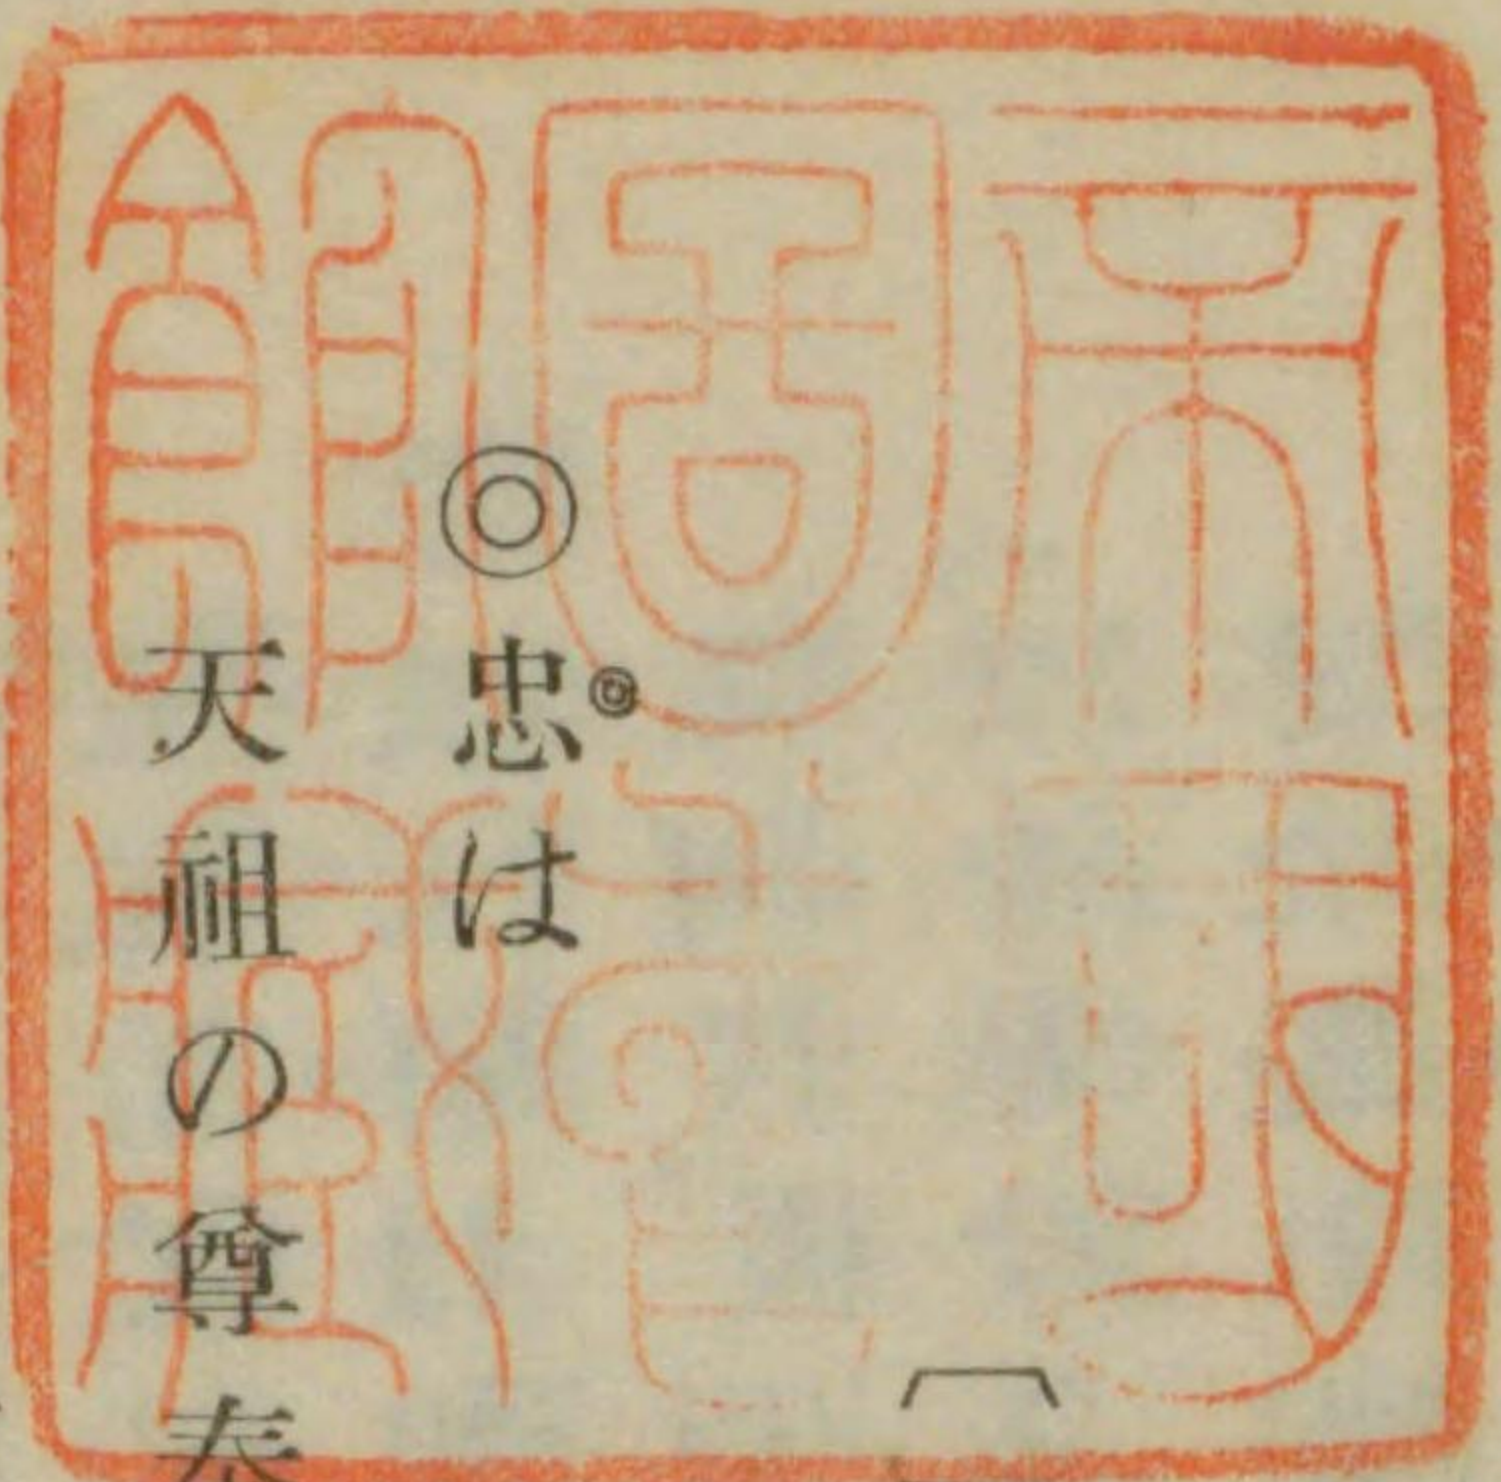 帝國圖書館藏
◎忠は
天祖の尊奉